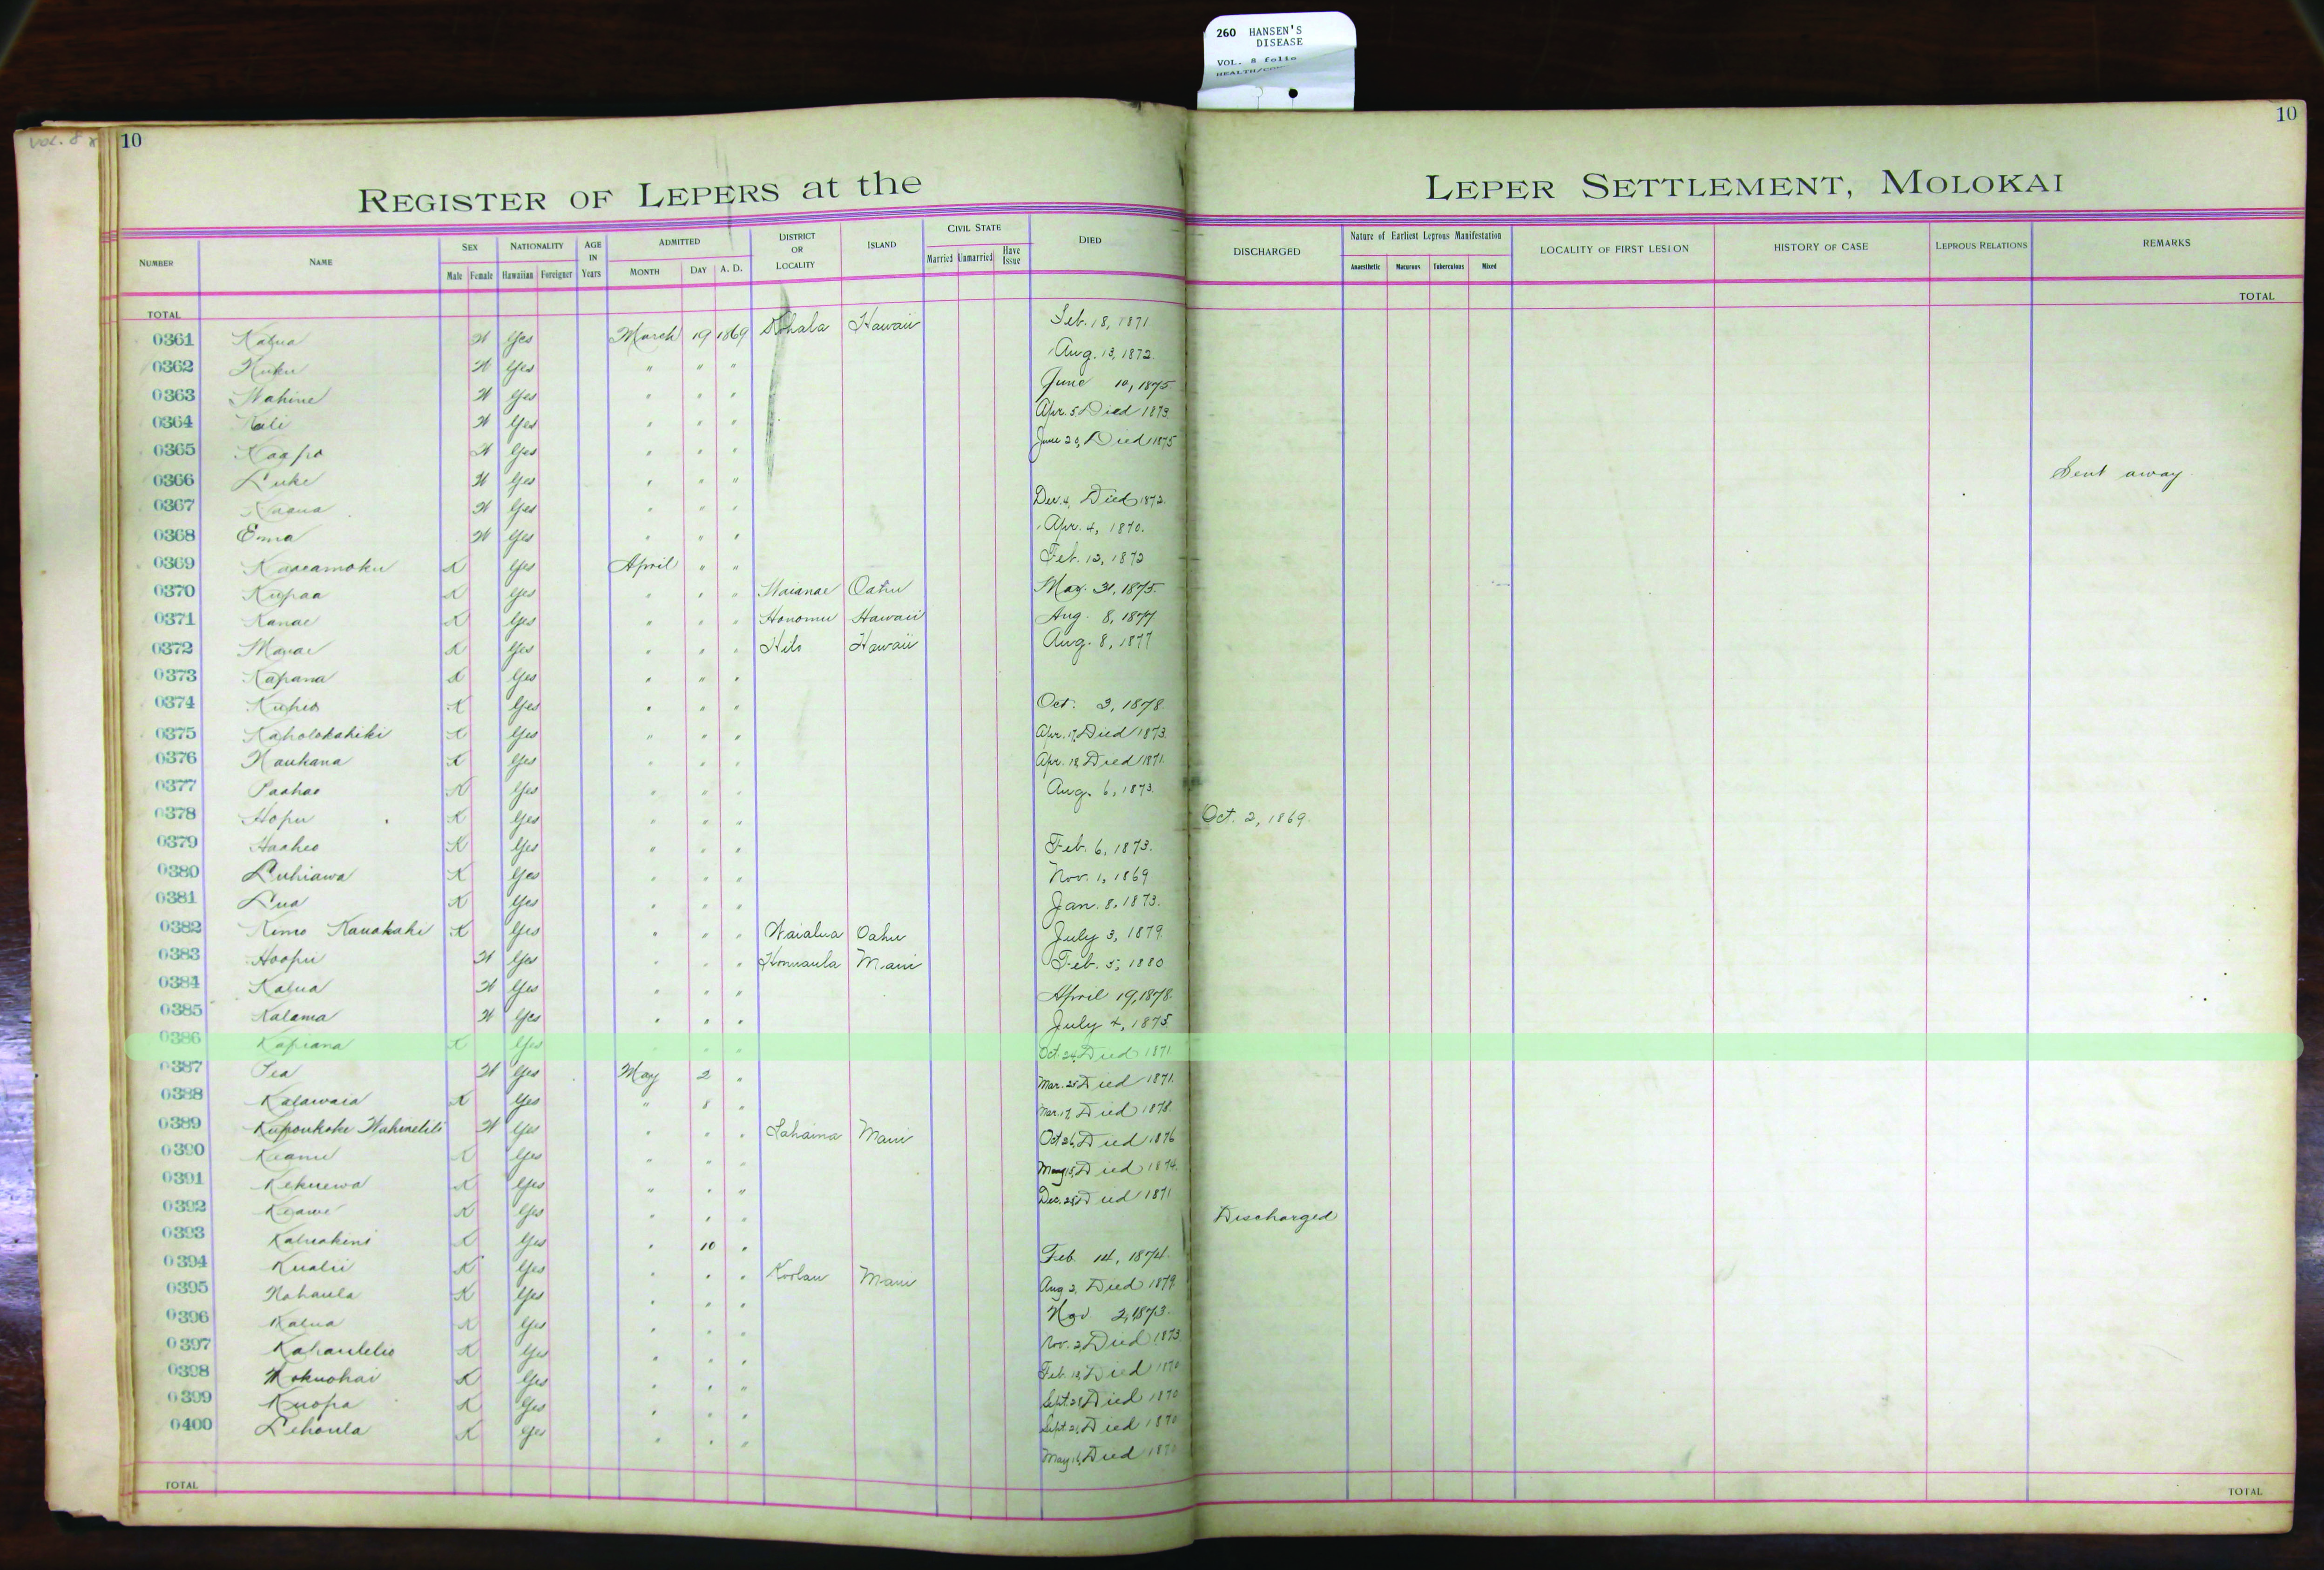 260 HANSEN'S
DISEASE
VOL. 8 folio
VOL. 8
10
10
REGISTER OF LEPERS at the LEPER SETTLEMENT, MOLOKAI
NUMBER NAME SEX Male Female NATIONALITY Hawaiian Foreigner AGE IN Years ADMITTED MONTH DAY A. D. DISTRICT OR LOCALITY ISLAND CIVIL STATE Married Unmarried Have Issue DIED DISCHARGED Nature of Earliest Leprous Manifestation Anaesthetic Macurous Tuberculous Mixed LOCALITY OF FIRST LESION HISTORY OF CASE LEPROUS RELATIONS REMARKS
TOTAL TOTAL
0361 Kalua W Yes March 19 1869 Kohala Hawaii Feb. 18, 1871
0362 Kuku W Yes " " " Aug. 13, 1872.
0363 Wahine W Yes " " " June 10, 1875
0364 Kali W Yes " " " Apr. 5 Died 1873.
0365 Kaapo W Yes " " " June 20, Died 1875
0366 Luke W Yes " " " Sent away
0367 W Yes " " " Dec. 4, Died 1872.
0368 Ema W Yes " " " Apr. 4, 1870.
0369 Kaaeamoku K Yes April " " Feb. 12, 1872
0370 Kupaa K Yes " " " Waianae Oahu May. 31, 1875.
0371 Kanae K Yes " " " Honomu Hawaii Aug. 8, 1877
0372 K Yes " " " Hilo Hawaii Aug. 8, 1877
0373 Kapana K Yes " " "
0374 Kuheo K Yes " " " Oct. 3, 1878.
0375 Kaholokahiki K Yes " " " Apr. 17, Died 1873.
0376 Naukana K Yes " " " Apr. 18 Died 1871.
0377 Paahao K Yes " " " Aug. 6, 1873.
0378 Hopu K Yes " " " Oct. 2, 1869.
0379 Haaheo K Yes " " " Feb. 6, 1873.
0380 Luhiawa K Yes " " " Nov. 1, 1869
0381 Lua K Yes " " " Jan. 8, 1873.
0382 Kimo Kauakahi K Yes " " " Waialua Oahu July 3, 1879.
0383 Hoopii W Yes " " " Honuaula Maui Feb. 5, 1880
0384 Kalua W Yes " " " April 19, 1878.
0385 Kalama W Yes " " " July 4, 1875
0386 Kapiana K Yes " " " Oct. 24, Died 1871
0387 Yes May 2 " W Mar. 25 Died 1871.
0388 Kalawaia K Yes " 8 " Mar. 17, Died 1878.
0389 Kupoukoke W Yes " " " Lahaina Maui Oct 26, Died 1876
0390 Keanu K Yes " " " May 15, Died 1874.
0391 Kekuewa K Yes " " " Dec. 28 Died 1871
0392 Keawe K Yes " " " Discharged
0393 Kaluakini K Yes " 10 " Feb. 14, 1874.
0394 Kualii K Yes " " " Koolau Maui Aug 2, Died 1879.
0395 Nohaula K Yes " " " Nov 2, 1873.
0396 Kalua K Yes " " " Nov. 2, Died 1873
0397 Kahaulelio K Yes " " " Feb. 18, Died 1870
0398 Mokuohai K Yes " " " Sept. 28 Died 1870
0399 Kuopa K Yes " " " Sept. 21, Died 1870
0400 Lehoula K Yes " " " May 16, Died 1870
TOTAL TOTAL